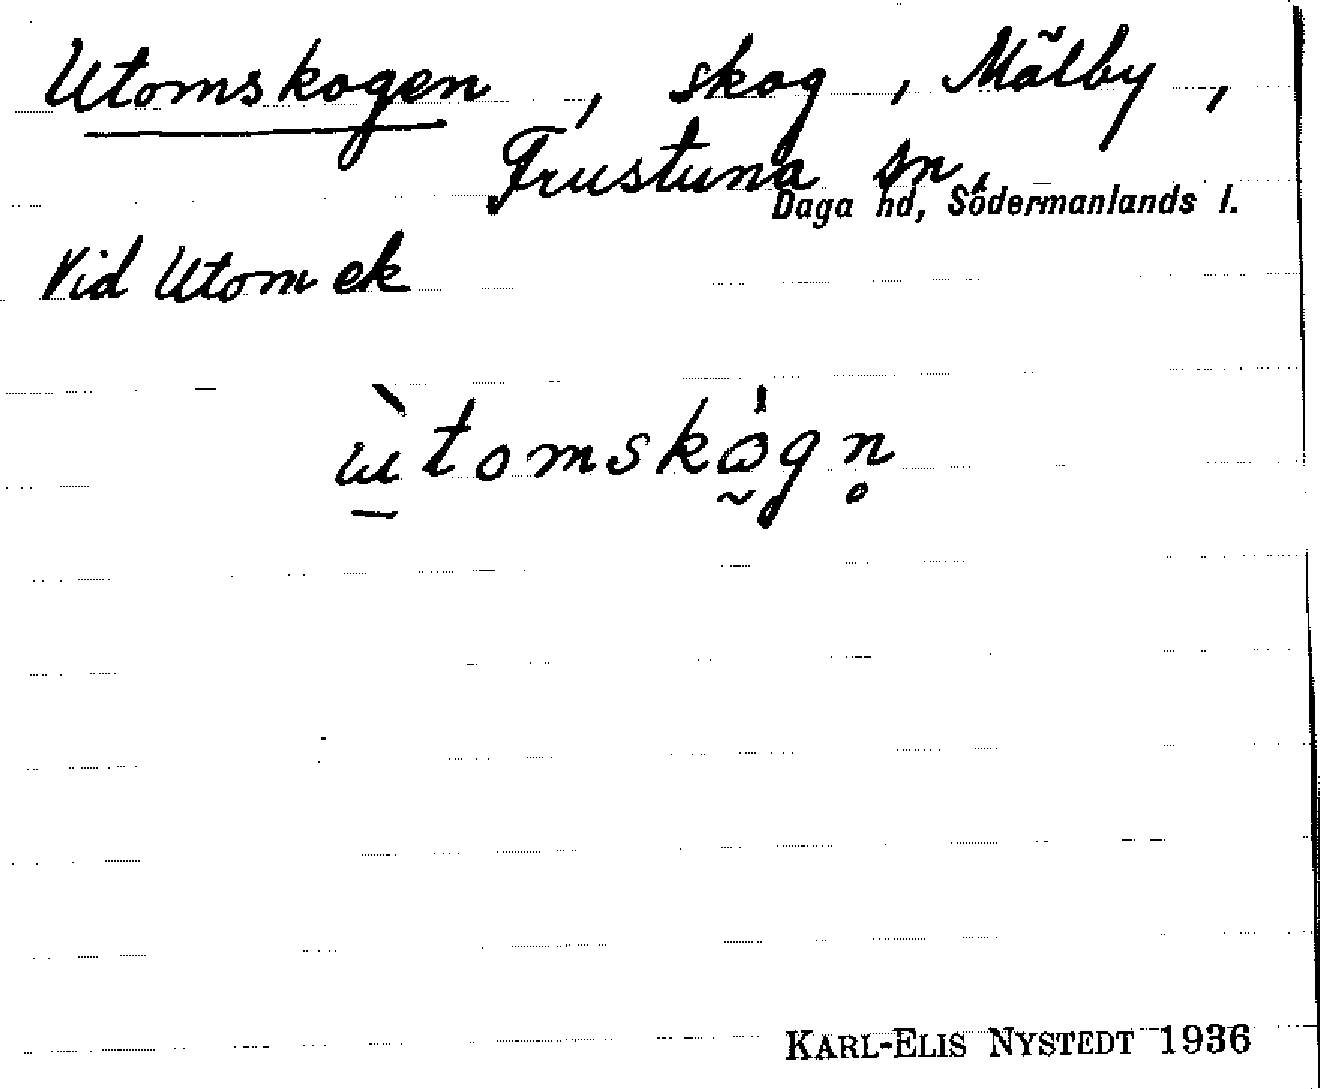 Utomskogen, skog, Mälby,
Frustuna sn,
Daga hd, Södermanlands l.
Vid Utomek
ɯ̱̀tomskɷ̰̍gn̥
KARL-ELIS NYSTEDT 1936